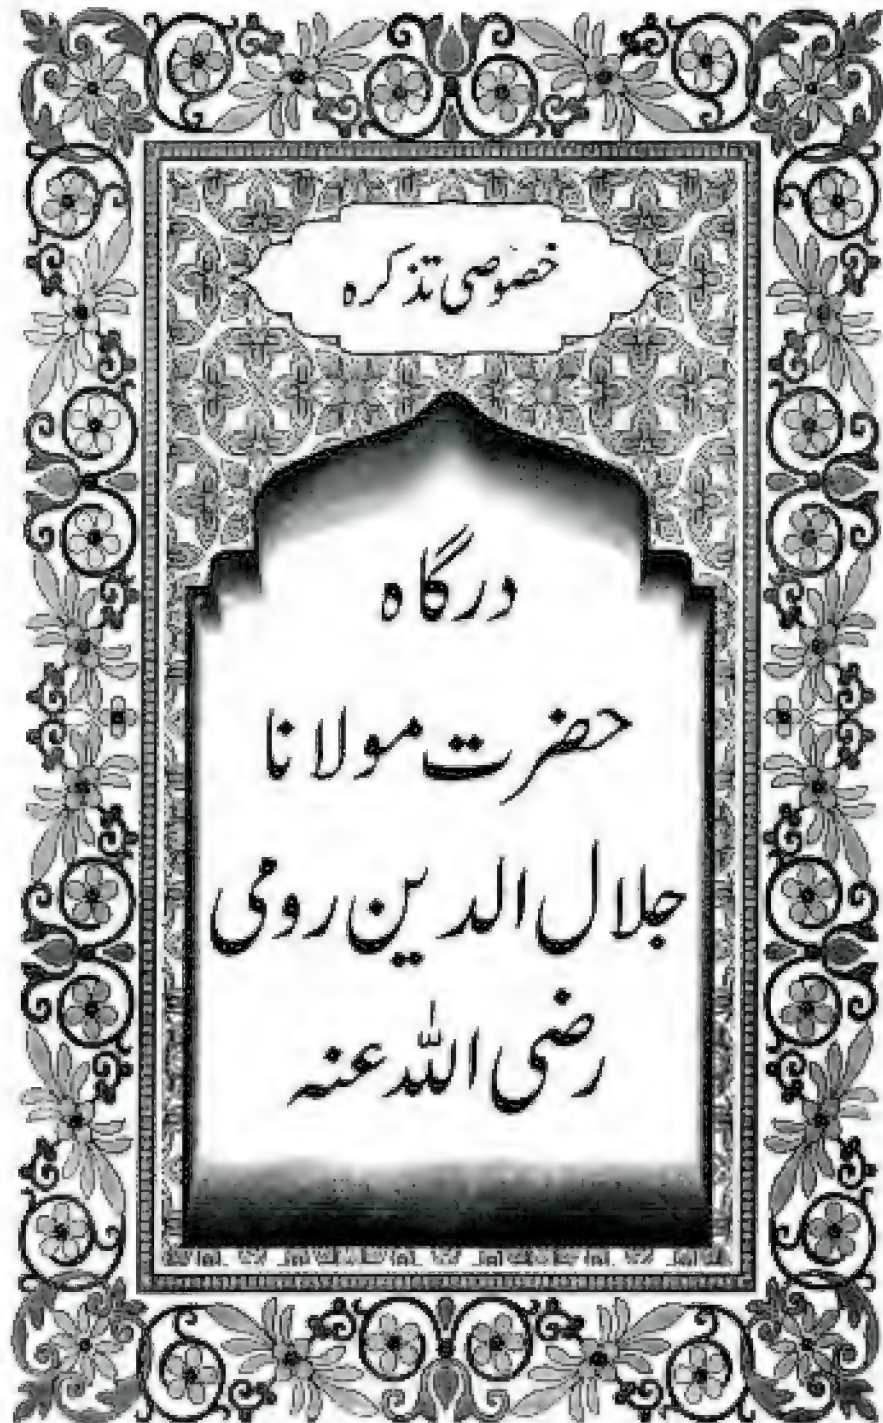 خصوصی تذکرہ
درگاہ
حضرت مولانا
جلال الدین رومی
رضی اللہ عنہ